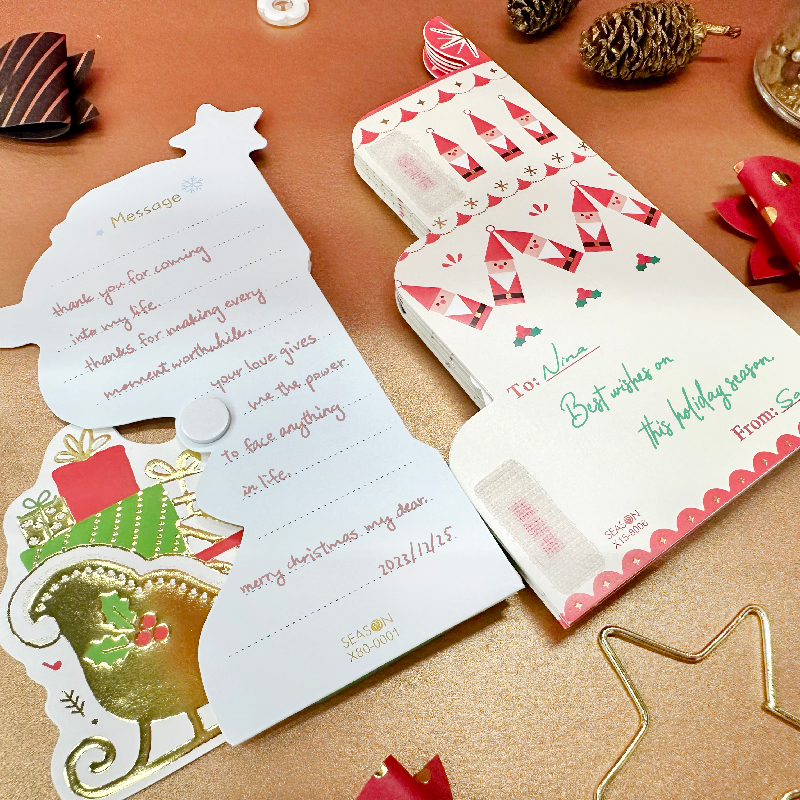 Message
thank you for coming
into my life.
thanks for making every
moment worthwhile.
your love gives
me the power
to face anything
in life.
merry christmas my dear.
2023/12/25
SEASON
X80-0001
To: Nina
Best wishes on
this holiday season
From:
SEASON
X15-8006